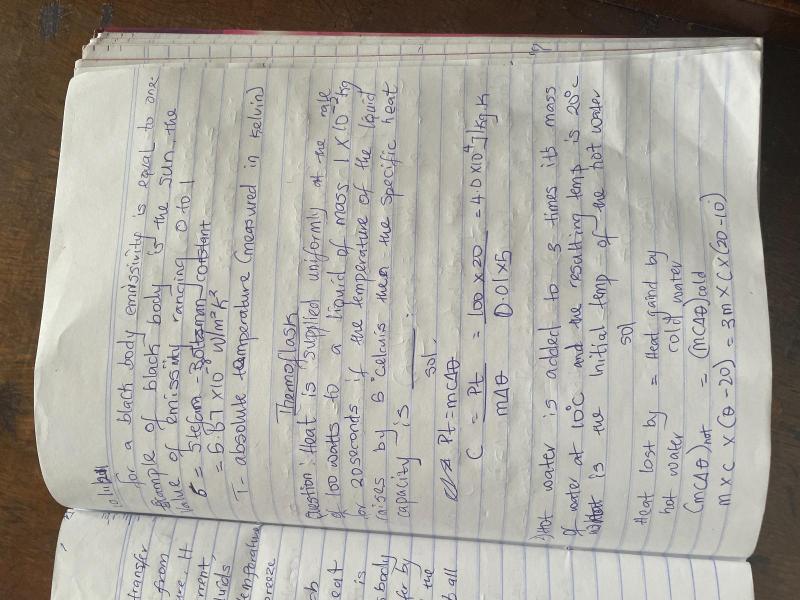 for a black body emissivity is equal to one.
Example of black body is the sun, the
Value of emissity ranging 0 to 1
σ = Stefam - Boltzman constant
= 5.67 x 10⁻⁸ W/m²K²
T - absolute temperature (measured in Kelvin)
Thermoflask
Question: Heat is supplied uniformly at the rate
of 100 watts to a liquid of mass 1 x 10⁻² kg
for 20 seconds if the temperature of the liquid
raises by 5 °Celcuis then the specific heat
capacity is ____.
sol.
Pt = mcΔθ
C = Pt = 100 x 20 = 4.0 x 10⁴ J/kg.K
mΔθ 0.01 x 5
Hot water is added to 3 times its mass
of water at 10°C and the resulting temp is 20°C
What is the initial temp of the hot water
sol
Heat lost by = Heat gaind by
hot water cold water
(mcΔθ)hot = (mcΔθ)cold
m x c x (θ - 20) = 3m x c x (20 - 10)
transfer
from
ure. It
ment,
uids,
temperature
breeze
eat
is
body
fer by
the
all